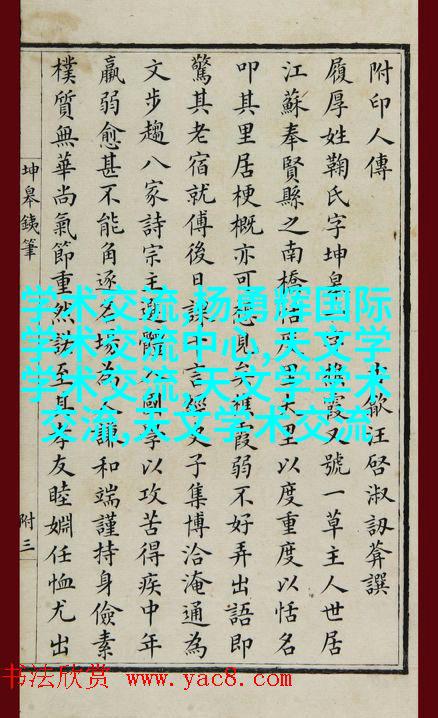 附印人傳
歙汪啓淑訒葊譔
履厚姓鞠氏字坤皋霞又號一草主人世居
江蘇奉賢縣之南橋恬里以度重度以恬名
叩其里居梗概亦可想見矣樵霞弱不好弄出語即
驚其老宿就傅後日課千言經史子集博洽淹通為
文步趨八家詩宗主選體入國學以攻苦得疾中年
羸弱愈甚不能角逐名場為人謙和端謹持身儉素
樸質無華尚氣節重然諾至其孝友睦婣任恤尤出
坤皋鐵筆
附三
学术交流,杨勇辉国际
学术交流中心,天文学
学术交流,天文学学术
交流,天文学术交流
书法欣赏 www.yac8.com